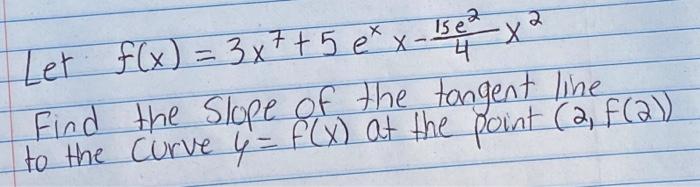 Let f(x) = 3x⁷ + 5 eˣ x - 15e²/4 x²
Find the slope of the tangent line
to the curve y = f(x) at the point (2, f(2))